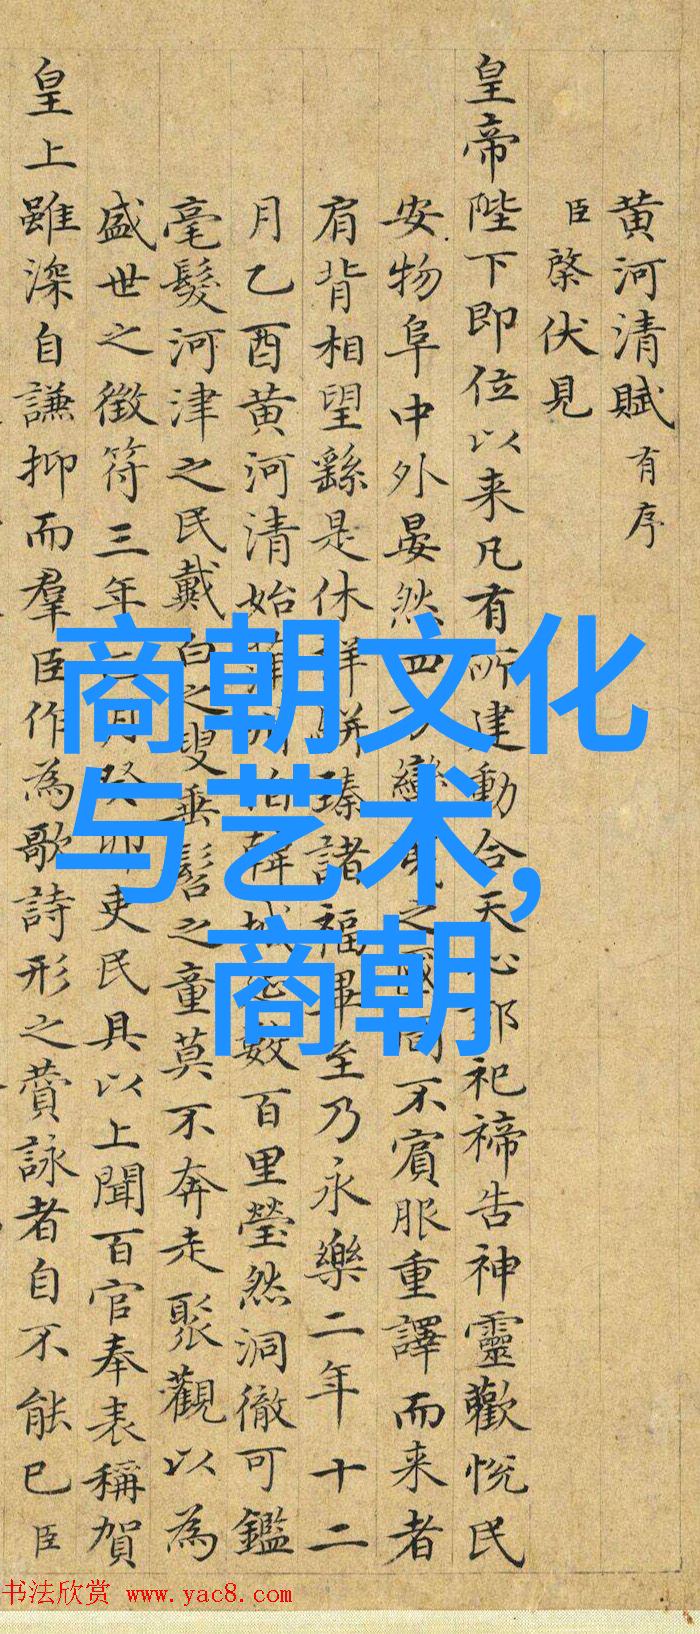 黄河清賦 有序
臣棨伏見
皇帝陛下即位以来凡有所建動合天心郊祀禘告神靈歡悅民
安物阜中外晏然四方蠻夷之國罔不賓服重譯而来者
肩背相望繇是休祥駢臻諸福畢至乃永樂二年十二
月乙酉黄河清始蒲州韓城數百里瑩然洞徹可鑑
毫髮河津之民戴白之叟垂髫之童莫不奔走聚觀以為
盛世之徵符三年月癸卯吏民具以上聞百官奉表稱賀
皇上雖深自謙抑而羣臣作為歌詩形之賛詠者自不能已臣
商朝文化
与艺术,
商朝
书法欣赏 www.yac8.com